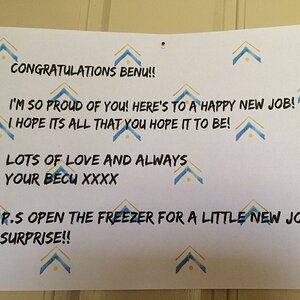 CONGRATULATIONS BENU!!
I'M SO PROUD OF YOU! HERE'S TO A HAPPY NEW JOB!
I HOPE ITS ALL THAT YOU HOPE IT TO BE!
LOTS OF LOVE AND ALWAYS
YOUR BECU XXXX
P.S OPEN THE FREEZER FOR A LITTLE NEW JO
SURPRISE!!